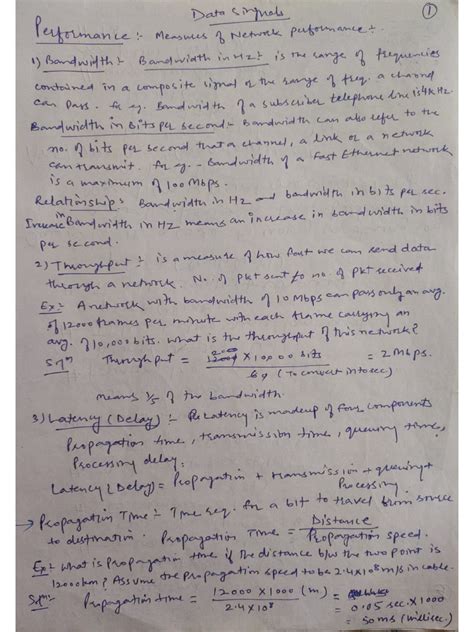 Data Signals
①
Performance :- Measures of Network performance :-
1) Bandwidth :- Bandwidth in Hz :- is the range of frequencies
contained in a composite signal or the range of freq. a channel
can pass. for eg. Bandwidth of a subscriber telephone line is 4kHz.
Bandwidth in Bits per second - Bandwidth can also refer to the
no. of bits per second that a channel, a link or a network
can transmit. for eg. - Bandwidth of a Fast Ethernet network
is a maximum of 100 Mbps.
Relationship: Bandwidth in Hz and bandwidth in bits per sec.
Increase in Bandwidth in Hz means an increase in bandwidth in bits
per second.
2) Throughput :- is a measure of how fast we can send data
through a network. No. of pkt sent to no. of pkt received
Ex:- A network with bandwidth of 10 Mbps can pass only an avg.
of 12000 frames per minute with each frame carrying an
avg. of 10,000 bits. what is the throughput of this network?
Sol^n Throughput = 12000 X 10000 bits = 2 Mbps.
60 (To convert into sec)
means 1/5 of the bandwidth.
3) Latency (Delay) :- Latency is made up of four components
Propagation time, transmission time, queuing time,
Processing delay.
Latency (Delay) = Propagation + transmission + queuing +
Processing.
→ Propagation Time :- Time req. for a bit to travel from source
to destination. Propagation Time = Distance
Propagation speed.
Ex:- What is propagation time if the distance b/w the two point is
12000km? Assume the propagation speed to be 2.4x10^8 m/s in cable.
Sol^n:- Propagation time = 12000 X 1000 (m)
2.4 x 10^8
= 0.05 sec. X 1000
= 50 ms (millisec.)